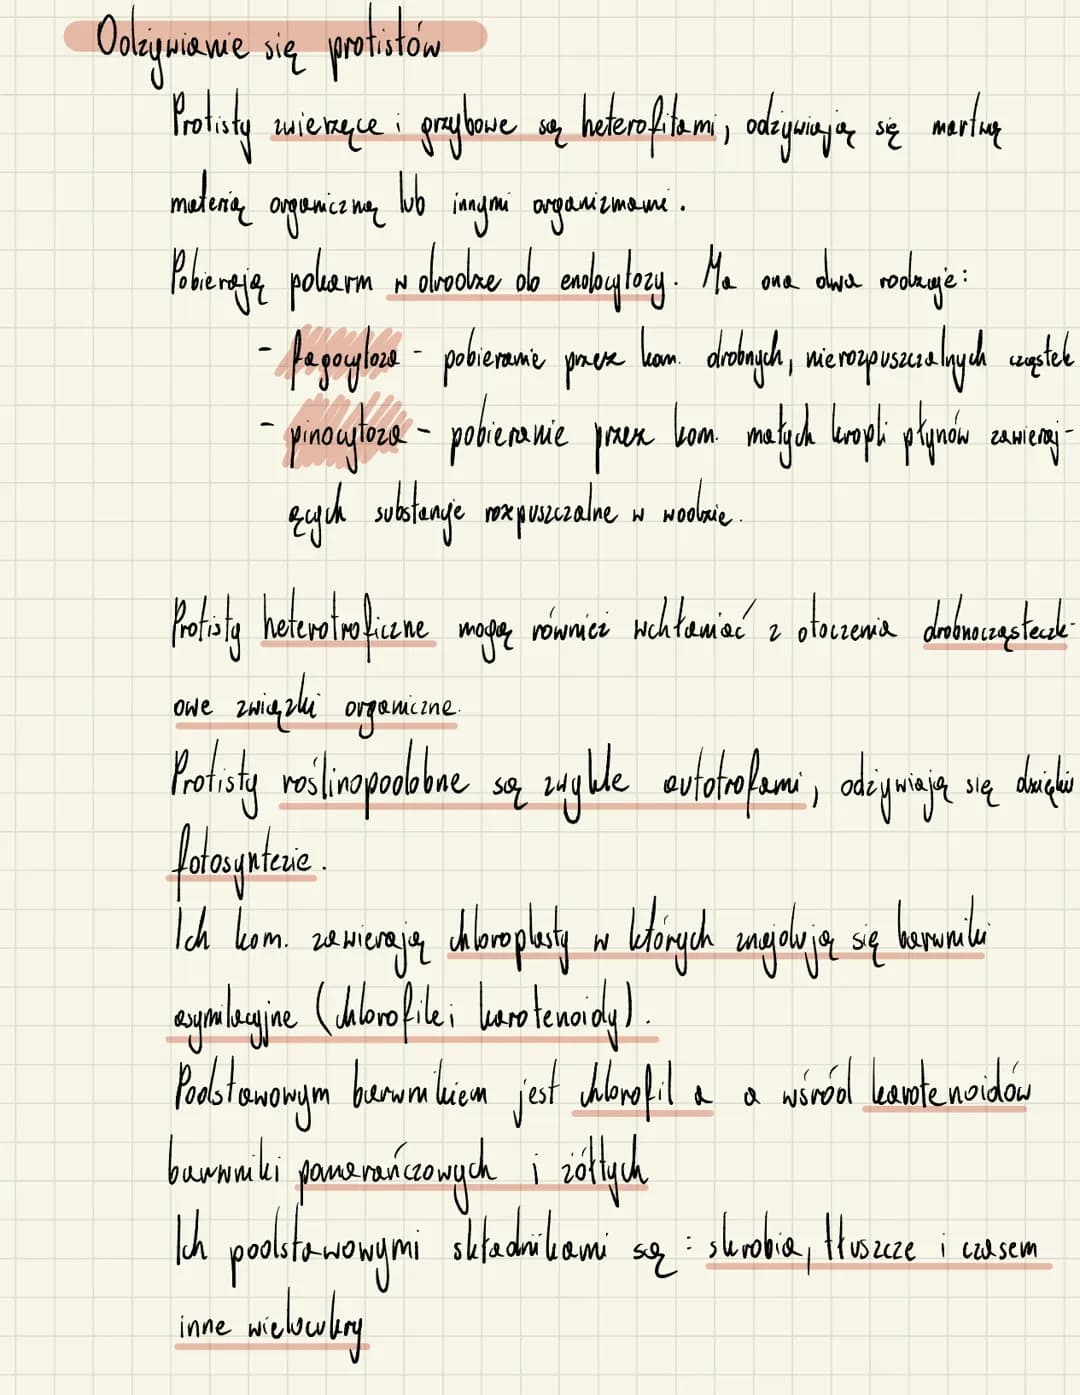 Odżywianie się protistów
Protisty zwierzęce i grzybowe są heterofitami, odżywiają się martwą
materią organiczną lub innymi organizmami.
Pobierają pokarm w drodze do endocytozy. Ma ona dwa rodzaje:
- fagocytoza - pobieranie przez kom. drobnych, nierozpuszczalnych cząstek
- pinocytoza - pobieranie przez kom. małych kropli płynów zawieraj-
ących substancje rozpuszczalne w wodzie.
Protisty heterotroficzne mogą również wchłaniać z otoczenia drobnocząsteczk-
owe związki organiczne.
Protisty roślinopodobne są zwykle autotrofami, odżywiają się dzięki
fotosyntezie.
Ich kom. zawierają chloroplasty w których znajdują się barwniki
asymilacyjne (chlorofile i karotenoidy).
Podstawowym barwnikiem jest chlorofil a a wśród karotenoidów
barwniki pomarańczowych i żółtych
Ich podstawowymi składnikami są : skrobia, tłuszcze i czasem
inne wielocukry